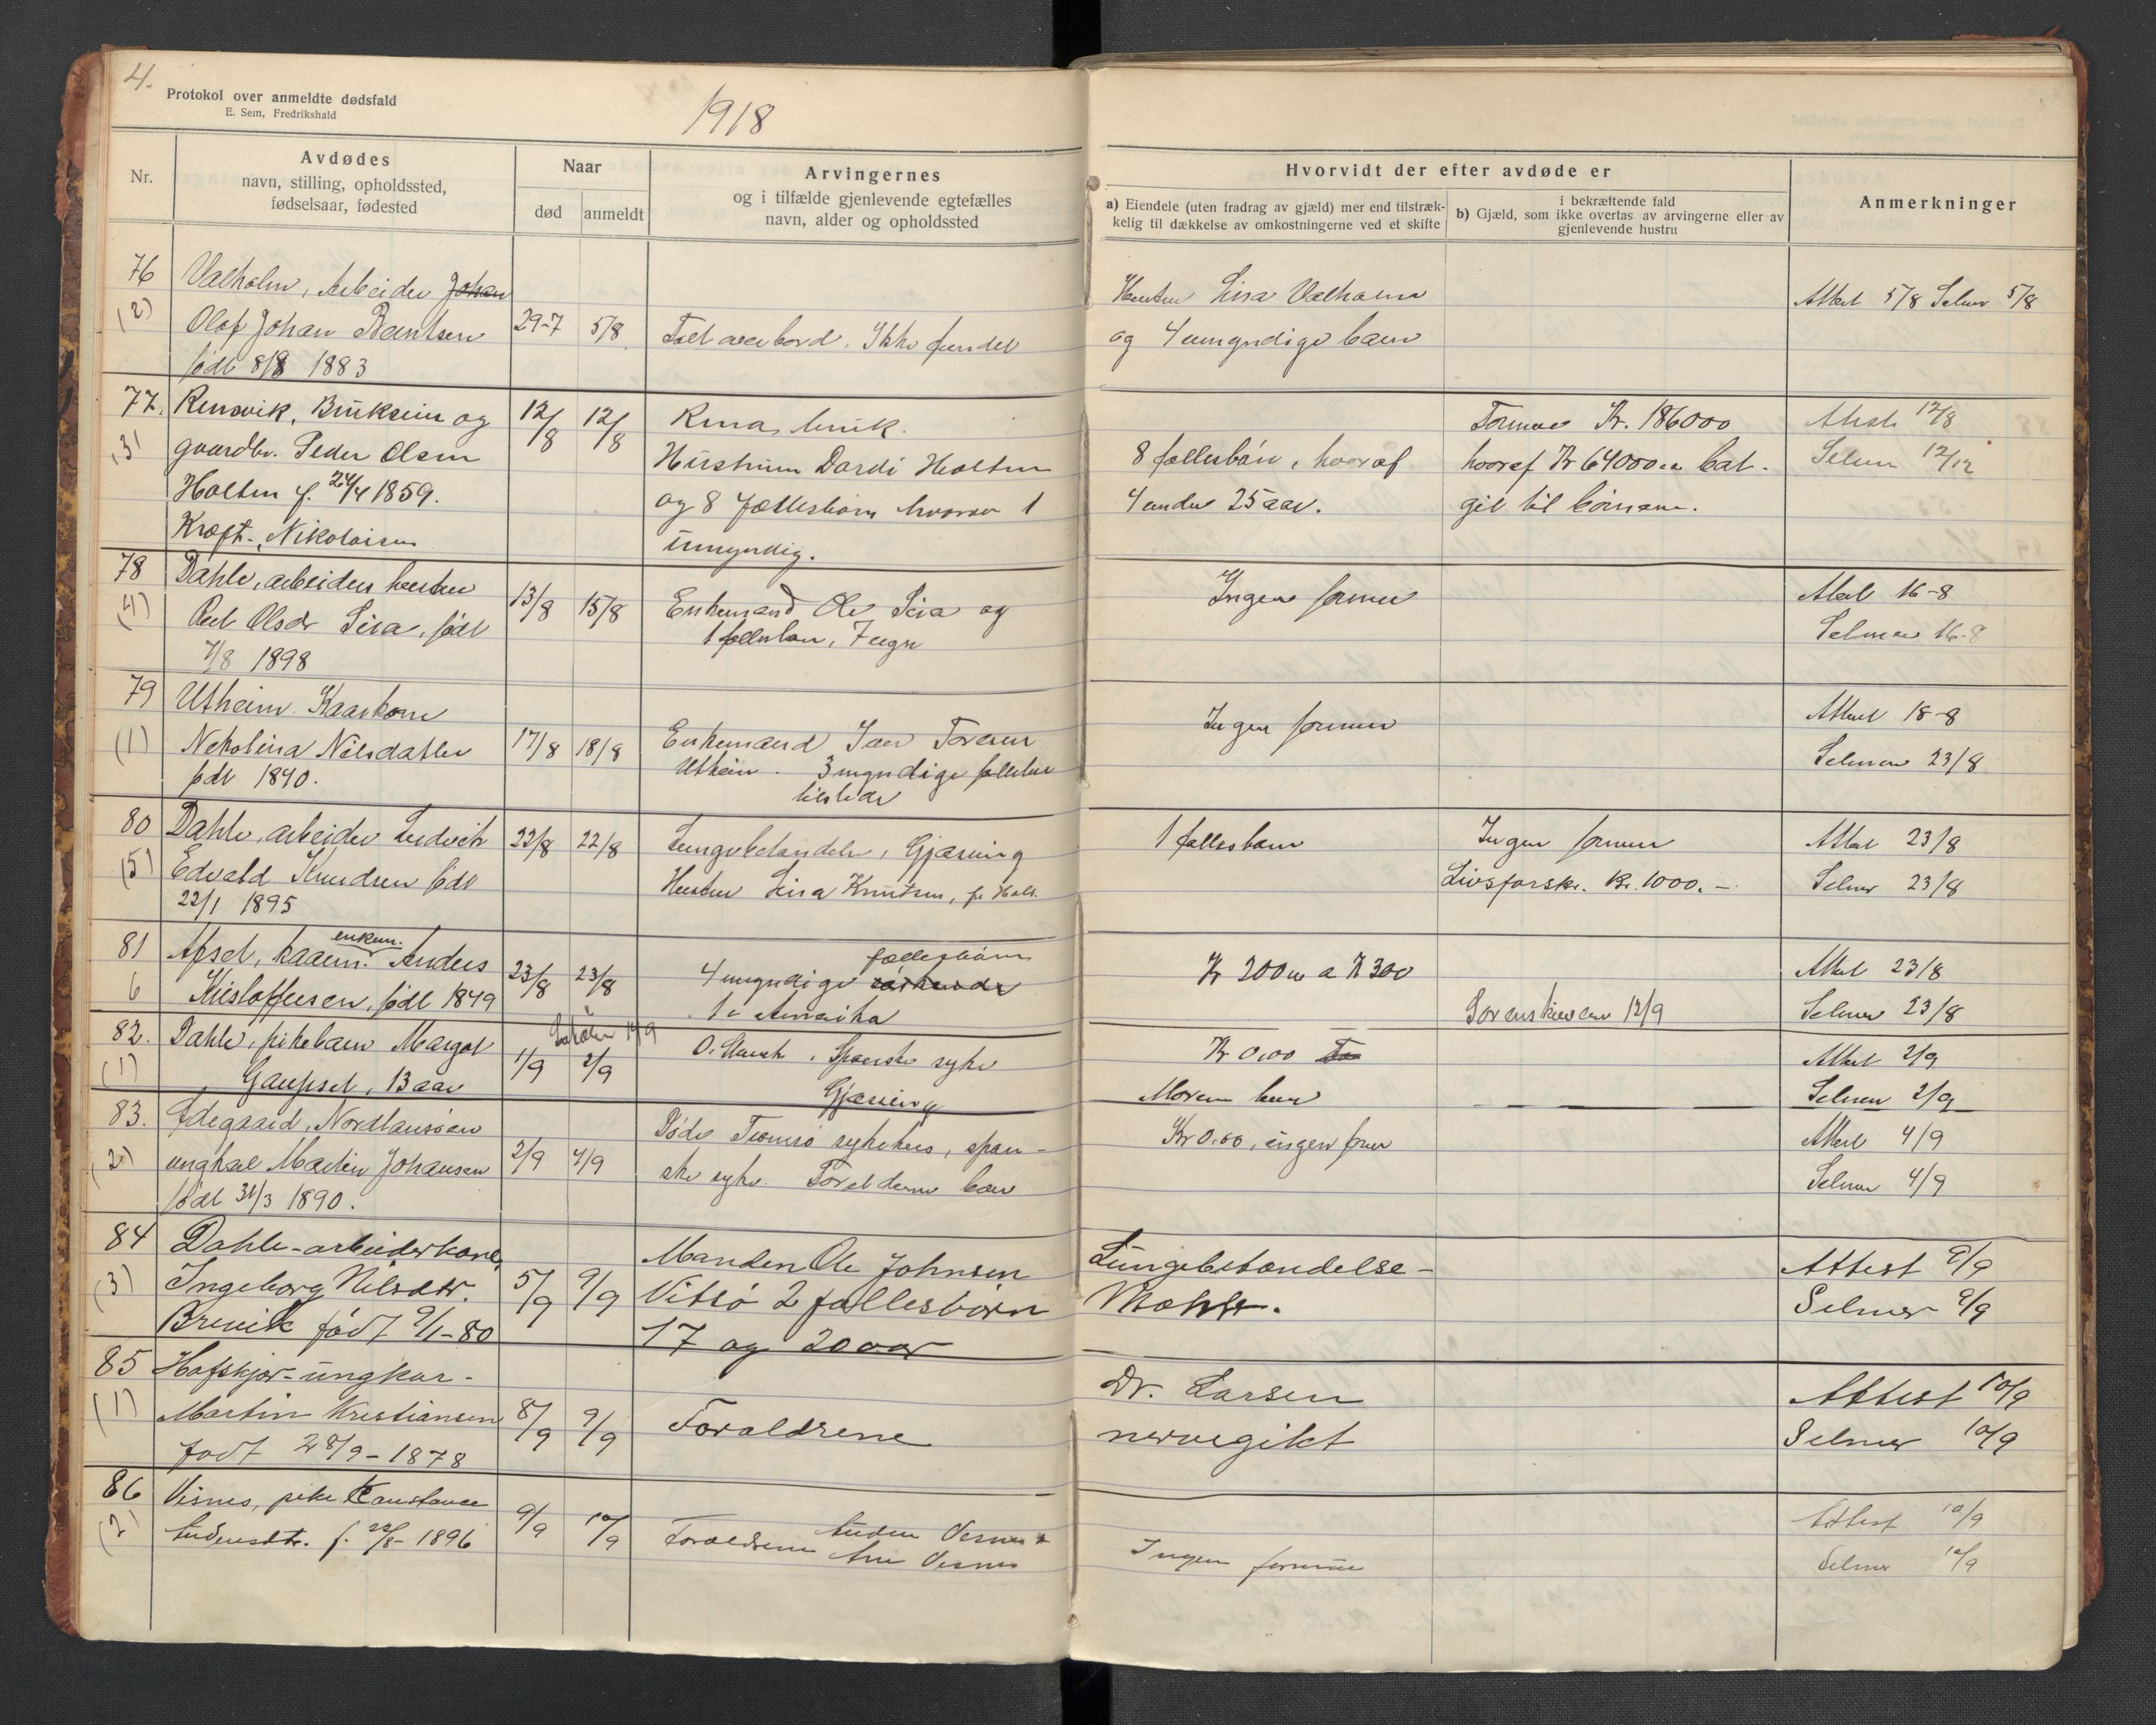 4.
Protokol over anmeldte dødsfald
E. Sem, Fredrikshald
1918
Nr.
Avdødes
navn, stilling, opholdssted,
fødselsaar, fødested
Naar
død
anmeldt
Arvingernes
og i tilfælde gjenlevende egtefælles
navn, alder og opholdssted
Hvorvidt der efter avdøde er
a) Eiendele (uten fradrag av gjæld) mer end tilstræk-
kelig til dækkelse av omkostningerne ved et skifte
i bekræftende fald
b) Gjæld, som ikke overtas av arvingerne eller av
gjenlevende hustru
Anmerkninger
76
(2)
Valholm, Arbeider Johan
Olaf Johan Berntsen
født 8/8 1883
29-7
5/8
Falt overbord. Ikke fundet
Hustru Lisa Valholm
og 4 umyndige barn
Attest 5/8 Selmer 5/8
77.
(3)
Rensvik, Brukseier og
gaardbr. Peder Olsen
Holten f. 24/4 1859.
Kræft. Nikolaisen
12/8
12/8
Rensvik.
Hustruen Dardi Holten
og 8 fællesbørn hvorav 1
umyndig.
8 fællesbørn, hvoraf
4 under 25 aar.
Formue Kr. 186000
hvoraf Kr 64000 er
git til børnene.
Attest 12/8
Selmer 12/12
78
(4)
Dahle, arbeiders hustru
Olsdr Lisa, født
7/8 1898
13/8
15/8
Enkemand Ole Lisa og
1 fællesbarn, 7 uger
Ingen formue
Attest 16-8
Selmer 16-8
79
(1)
Utheim Kaarkone
Nekolina Nilsdatter
født 1840.
17/8
18/8
Enkemand Iver Toresen
Utheim. 3 myndige fællesbør
tilstede
Ingen formue
Attest 18-8
Selmer 23/8
80
(5)
Dahle, arbeider Ludvik
Edvald Knudsen født
22/1 1895
22/8
22/8
Lungebetændelse, Gjæsing
Hustru Lisa Knutsen, f. Hals.
1 fællesbarn
Ingen formue
Livsforsikr. Kr. 1000.-
Attest 23/8
Selmer 23/8
81
6
Apsel, kaarm. enkem. Anders
Kristoffersen, født 1849
23/8
23/8
4 myndige fællesbørn
1 i Amerika
Kr 200 a Kr 300
Sorenskriveren 12/9
Attest 23/8
Selmer 23/8
82.
(1)
Dahle, pikebarn Margot
Gaupset, 13 aar
1/9
2/9
14/9
Spanske syke
Gjæsing
Kr 0,00
Moren
Attest 2/9
Selmer 2/9
83.
(2)
Ødegaard, Nordlandsøen
ungkar Martin Johansen
født 31/3 1890.
2/9
4/9
Døde Tromsø sykehus, span-
ske syke. Forældrene
Kr 0,00, ingen formue
Attest 4/9
Selmer 4/9
84
(3)
Dahle - arbeiderkone
Ingeborg Nilsdtr.
Brevik født 9/1-80
5/9
9/9
Manden Ole Johnsen
Vitsø 2 fællesbørn
17 og 20 aar
Lungebetændelse -
Mohr.
Attest 9/9
Selmer 9/9
85
(1)
Hafskjær - ungkar -
Martin Kristiansen
født 28/9 - 1878
8/9
9/9
Forældrene
Dr. Larsen
nervegikt
Attest 10/9
Selmer 10/9
86
(2)
Visnes, pike Constance
Andersdtr. f. 22/8 - 1896
9/9
10/9
Forældrene Anders Visnes &
Ane Visnes
Ingen formue
Attest 10/9
Selmer 10/9